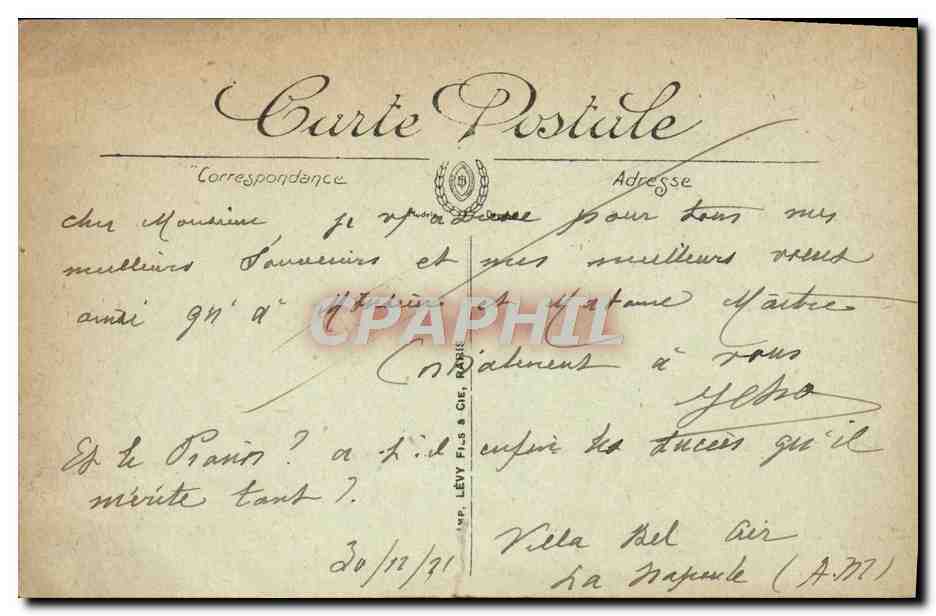 Carte Postale
Correspondance
Adresse
cher Monsieur, je vs adresse pour tous mes
meilleurs Souvenirs et mes meilleurs voeux
ainsi qu'à Monsieur et Madame Maître
CPAPHIL
Cordialement à vous
Et le Piano? a-t-il enfin les succès qu'il
mérite tant?
IMP. LÉVY FILS & CIE, PARIS
Villa Bel Air
La Napoule (A.M)